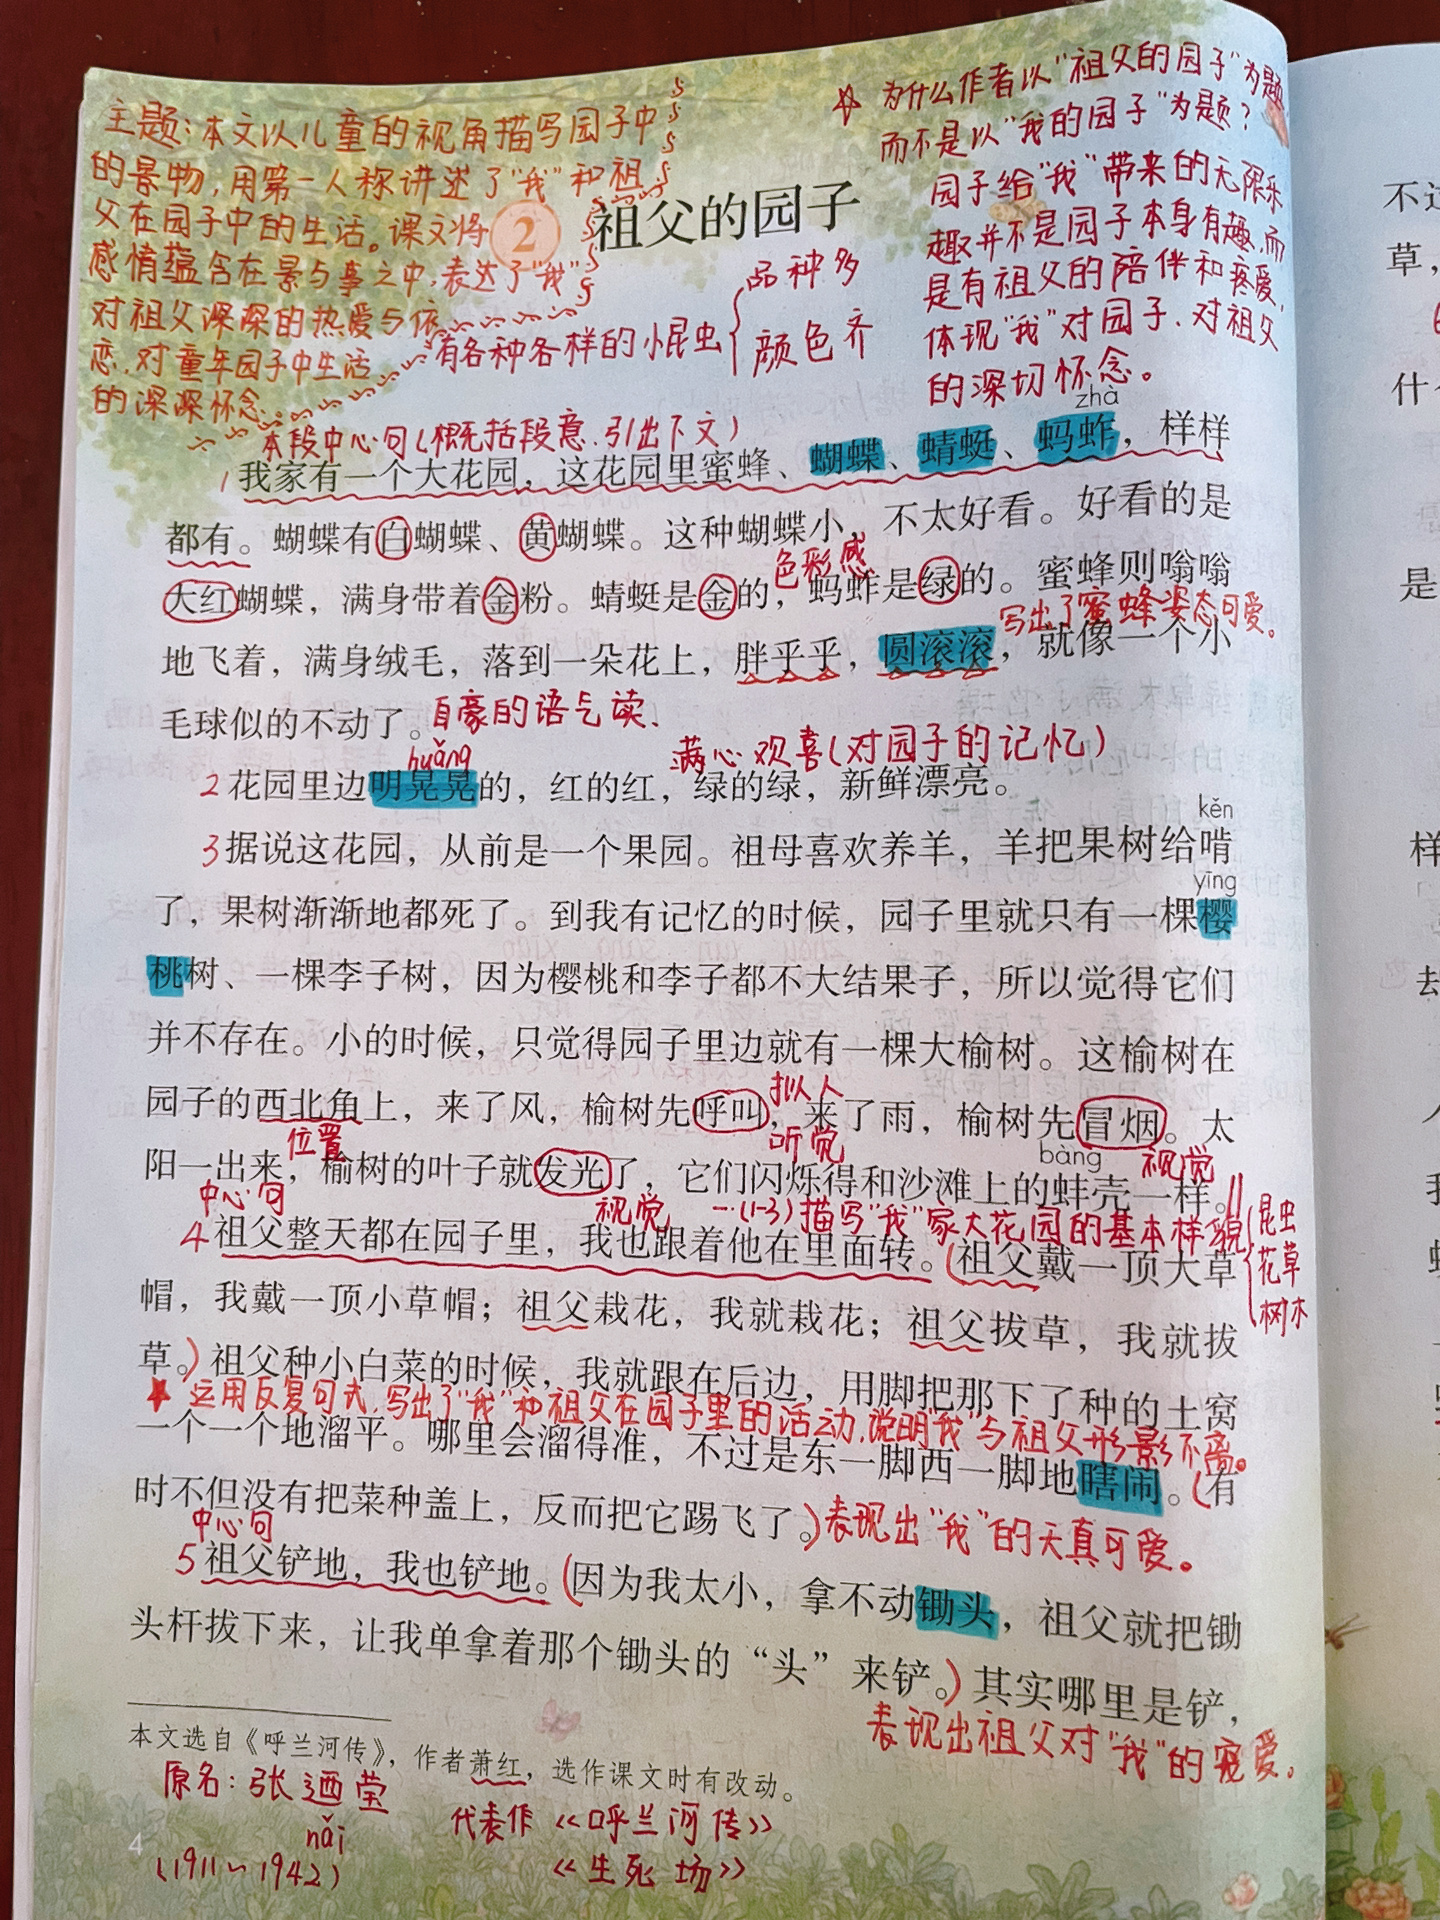 主题:本文以儿童的视角描写园子中
的景物,用第一人称讲述了"我"和祖
父在园子中的生活。课文将
感情蕴含在景与事之中,表达了"我"
对祖父深深的热爱与依
恋、对童年园子中生活
的深深怀念
☆ 为什么作者以"祖父的园子"为题
而不是以"我的园子"为题?
园子给"我"带来的无限乐
趣并不是园子本身有趣,而
是有祖父的陪伴和疼爱,
体现"我"对园子、对祖父
的深切怀念。
2 祖父的园子
有各种各样的小昆虫
品种多
颜色齐
本段中心句(概括段意、引出下文)
zhà
1 我家有一个大花园,这花园里蜜蜂、蝴蝶、蜻蜓、蚂蚱,样样
都有。蝴蝶有白蝴蝶、黄蝴蝶。这种蝴蝶小,不太好看。好看的是
色彩感
大红蝴蝶,满身带着金粉。蜻蜓是金的,蚂蚱是绿的。蜜蜂则嗡嗡
写出了蜜蜂姿态可爱。
地飞着,满身绒毛,落到一朵花上,胖乎乎,圆滚滚,就像一个小
毛球似的不动了。自豪的语气读、
huǎng
满心欢喜(对园子的记忆)
2 花园里边明晃晃的,红的红,绿的绿,新鲜漂亮。
kěn
3 据说这花园,从前是一个果园。祖母喜欢养羊,羊把果树给啃
yīng
了,果树渐渐地都死了。到我有记忆的时候,园子里就只有一棵樱
桃树、一棵李子树,因为樱桃和李子都不大结果子,所以觉得它们
并不存在。小的时候,只觉得园子里边就有一棵大榆树。这榆树在
拟人
园子的西北角上,来了风,榆树先呼叫,来了雨,榆树先冒烟。太
位置
听觉
bàng
视觉
阳一出来,榆树的叶子就发光了,它们闪烁得和沙滩上的蚌壳一样。
中心句
视觉
(1-3)描写"我"家大花园的基本样貌
昆虫
花草
树木
4 祖父整天都在园子里,我也跟着他在里面转。(祖父戴一顶大草
帽,我戴一顶小草帽;祖父栽花,我就栽花;祖父拔草,我就拔
草。)祖父种小白菜的时候,我就跟在后边,用脚把那下了种的土窝
★ 运用反复句式,写出了"我"和祖父在园子里的活动,说明"我"与祖父形影不离。
一个一个地溜平。哪里会溜得准,不过是东一脚西一脚地瞎闹。(有
时不但没有把菜种盖上,反而把它踢飞了。)表现出"我"的天真可爱。
中心句
5 祖父铲地,我也铲地。(因为我太小,拿不动锄头,祖父就把锄
头杆拔下来,让我单拿着那个锄头的“头”来铲。)其实哪里是铲,
表现出祖父对"我"的宠爱。
本文选自《呼兰河传》,作者萧红,选作课文时有改动。
原名:张迺莹
nǎi
(1911~1942)
代表作《呼兰河传》
《生死场》
4
不过
草,
什么
是
样
去